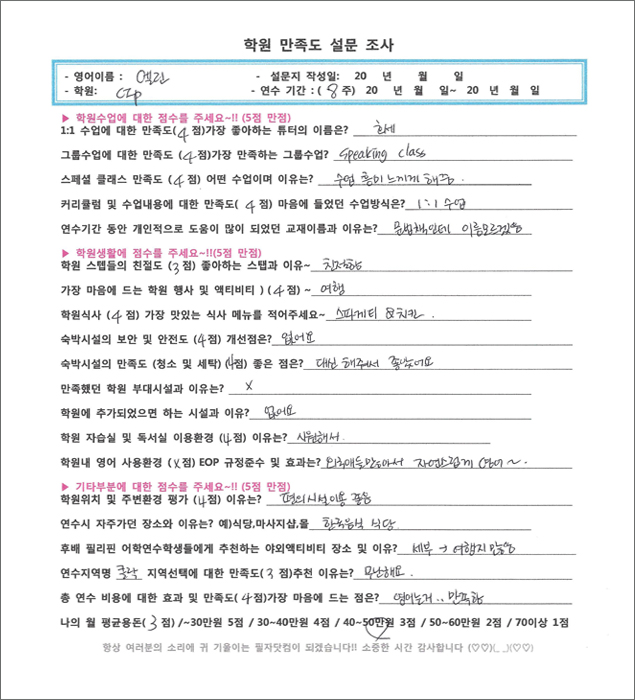 학원 만족도 설문 조사
- 영어이름 : 엘린 - 설문지 작성일: 20 년 월 일
- 학원: CIP - 연수 기간 : ( 8 주) 20 년 월 일~ 20 년 월 일
▶ 학원수업에 대한 점수를 주세요~!! (5점 만점)
1:1 수업에 대한 만족도(4점)가장 좋아하는 튜터의 이름은?
그룹수업에 대한 만족도 (4점)가장 만족하는 그룹수업? speaking class
스페셜 클래스 만족도 (4점) 어떤 수업이며 이유는? 수업 흥미 느끼게 해줌.
커리큘럼 및 수업내용에 대한 만족도( 4점) 마음에 들었던 수업방식은? 1:1 수업
연수기간 동안 개인적으로 도움이 많이 되었던 교재이름과 이유는? 문법책인데 이름모르겠음
▶ 학원생활에 점수를 주세요~!!(5점 만점)
학원 스텝들의 친절도 (3점) 좋아하는 스탭과 이유~ 친절함
가장 마음에 드는 학원 행사 및 액티비티 ) (4점) ~ 여행
학원식사 (4점) 가장 맛있는 식사 메뉴를 적어주세요~ 스파게티 & 치킨.
숙박시설의 보안 및 안전도 (4점) 개선점은? 없어요
숙박시설의 만족도 (청소 및 세탁) (4점) 좋은 점은? 대신 해주셔서 좋았어요
만족했던 학원 부대시설과 이유는? X
학원에 추가되었으면 하는 시설과 이유? 없어요
학원 자습실 및 독서실 이용환경 (4점) 이유는? 시원해서.
학원내 영어 사용환경 (x점) EOP 규정준수 및 효과는? 외국애들 많아서 자연스럽게 영어~.
▶ 기타부분에 대한 점수를 주세요~!! (5점 만점)
학원위치 및 주변환경 평가 (4점) 이유는? 편의시설이용 좋음
연수시 자주가던 장소와 이유는? 예)식당,마사지샵,몰 한국음식 식당.
후배 필리핀 어학연수학생들에게 추천하는 야외액티비티 장소 및 이유? 세부 → 여행지 많음
연수지역명 클락 지역선택에 대한 만족도( 3점)추천 이유는? 무난해요.
총 연수 비용에 대한 효과 및 만족도( 4점)가장 마음에 드는 점은? 영어느거.. 만족함
나의 월 평균용돈( 3점) /~30만원 5점 / 30~40만원 4점 / 40~50만원 3점 / 50~60만원 2점 / 70이상 1점
항상 여러분의 소리에 귀 기울이는 필자닷컴이 되겠습니다!! 소중한 시간 감사합니다 (♡♡)(_ _)(♡♡)